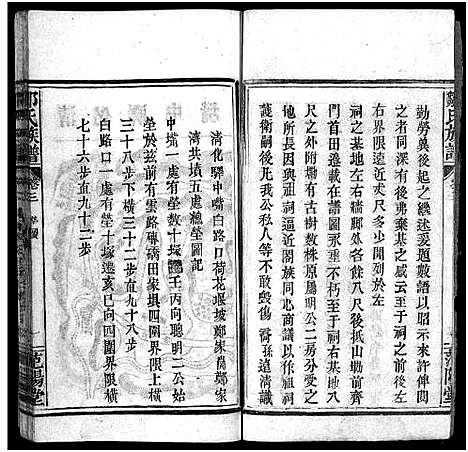 鄭氏族譜
勤勞冀後起之繼述爰題數語以昭示來許俾閱
者同深有後弗棄基之感云至于祠之前後左
右界限遠近尺寸多少開列于後
祠之基地左右牆腳外各餘八尺後抵山塝前
門首田邊載在譜圖永垂不朽至于祠右基地八
尺之外附塝有古樹數株原屬明公二房分受之
地所長因與祠逼近闔族同心商議以作祠
護衛嗣後我公私人等不敢毀傷 裔孫遠清識
萬陽堂
清共墳五處總塋圖記
清化驛中嘴白路口荷花堰坡鄭家
中塆一處有塋數十塚壬丙向聰明二公始
塋於茲前有雲路磚碃田家俱四圍界限上橫
三十八步下橫三十二步直九十八步
白路口一處有塋十塚邊亥巳向四圍界限橫
七十六步直九十二步
鄭氏族譜
卷三
萬陽堂